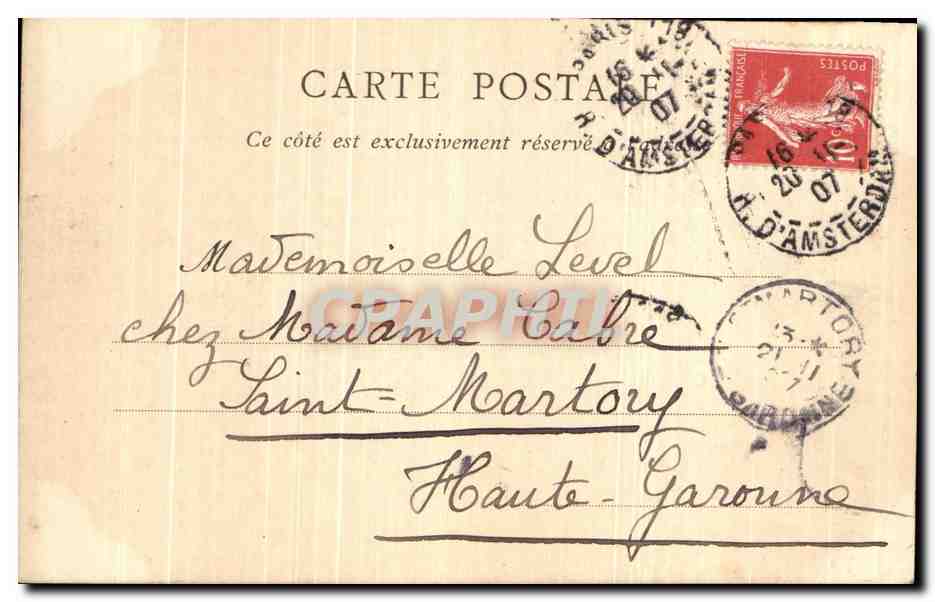 CARTE POSTALE
Ce côté est exclusivement réservé
PARIS 18
16 *
20 11
07
R. D'AMSTERDAM
RÉPUBLIQUE FRANÇAISE
POSTES
10
18
16 *
20 11
07
R. D'AMSTERDAM
Mademoiselle Level
chez Madame Cabre
Saint-Martory
Haute-Garonne
MARTORY
21 11
GARONNE
CRAPHTI